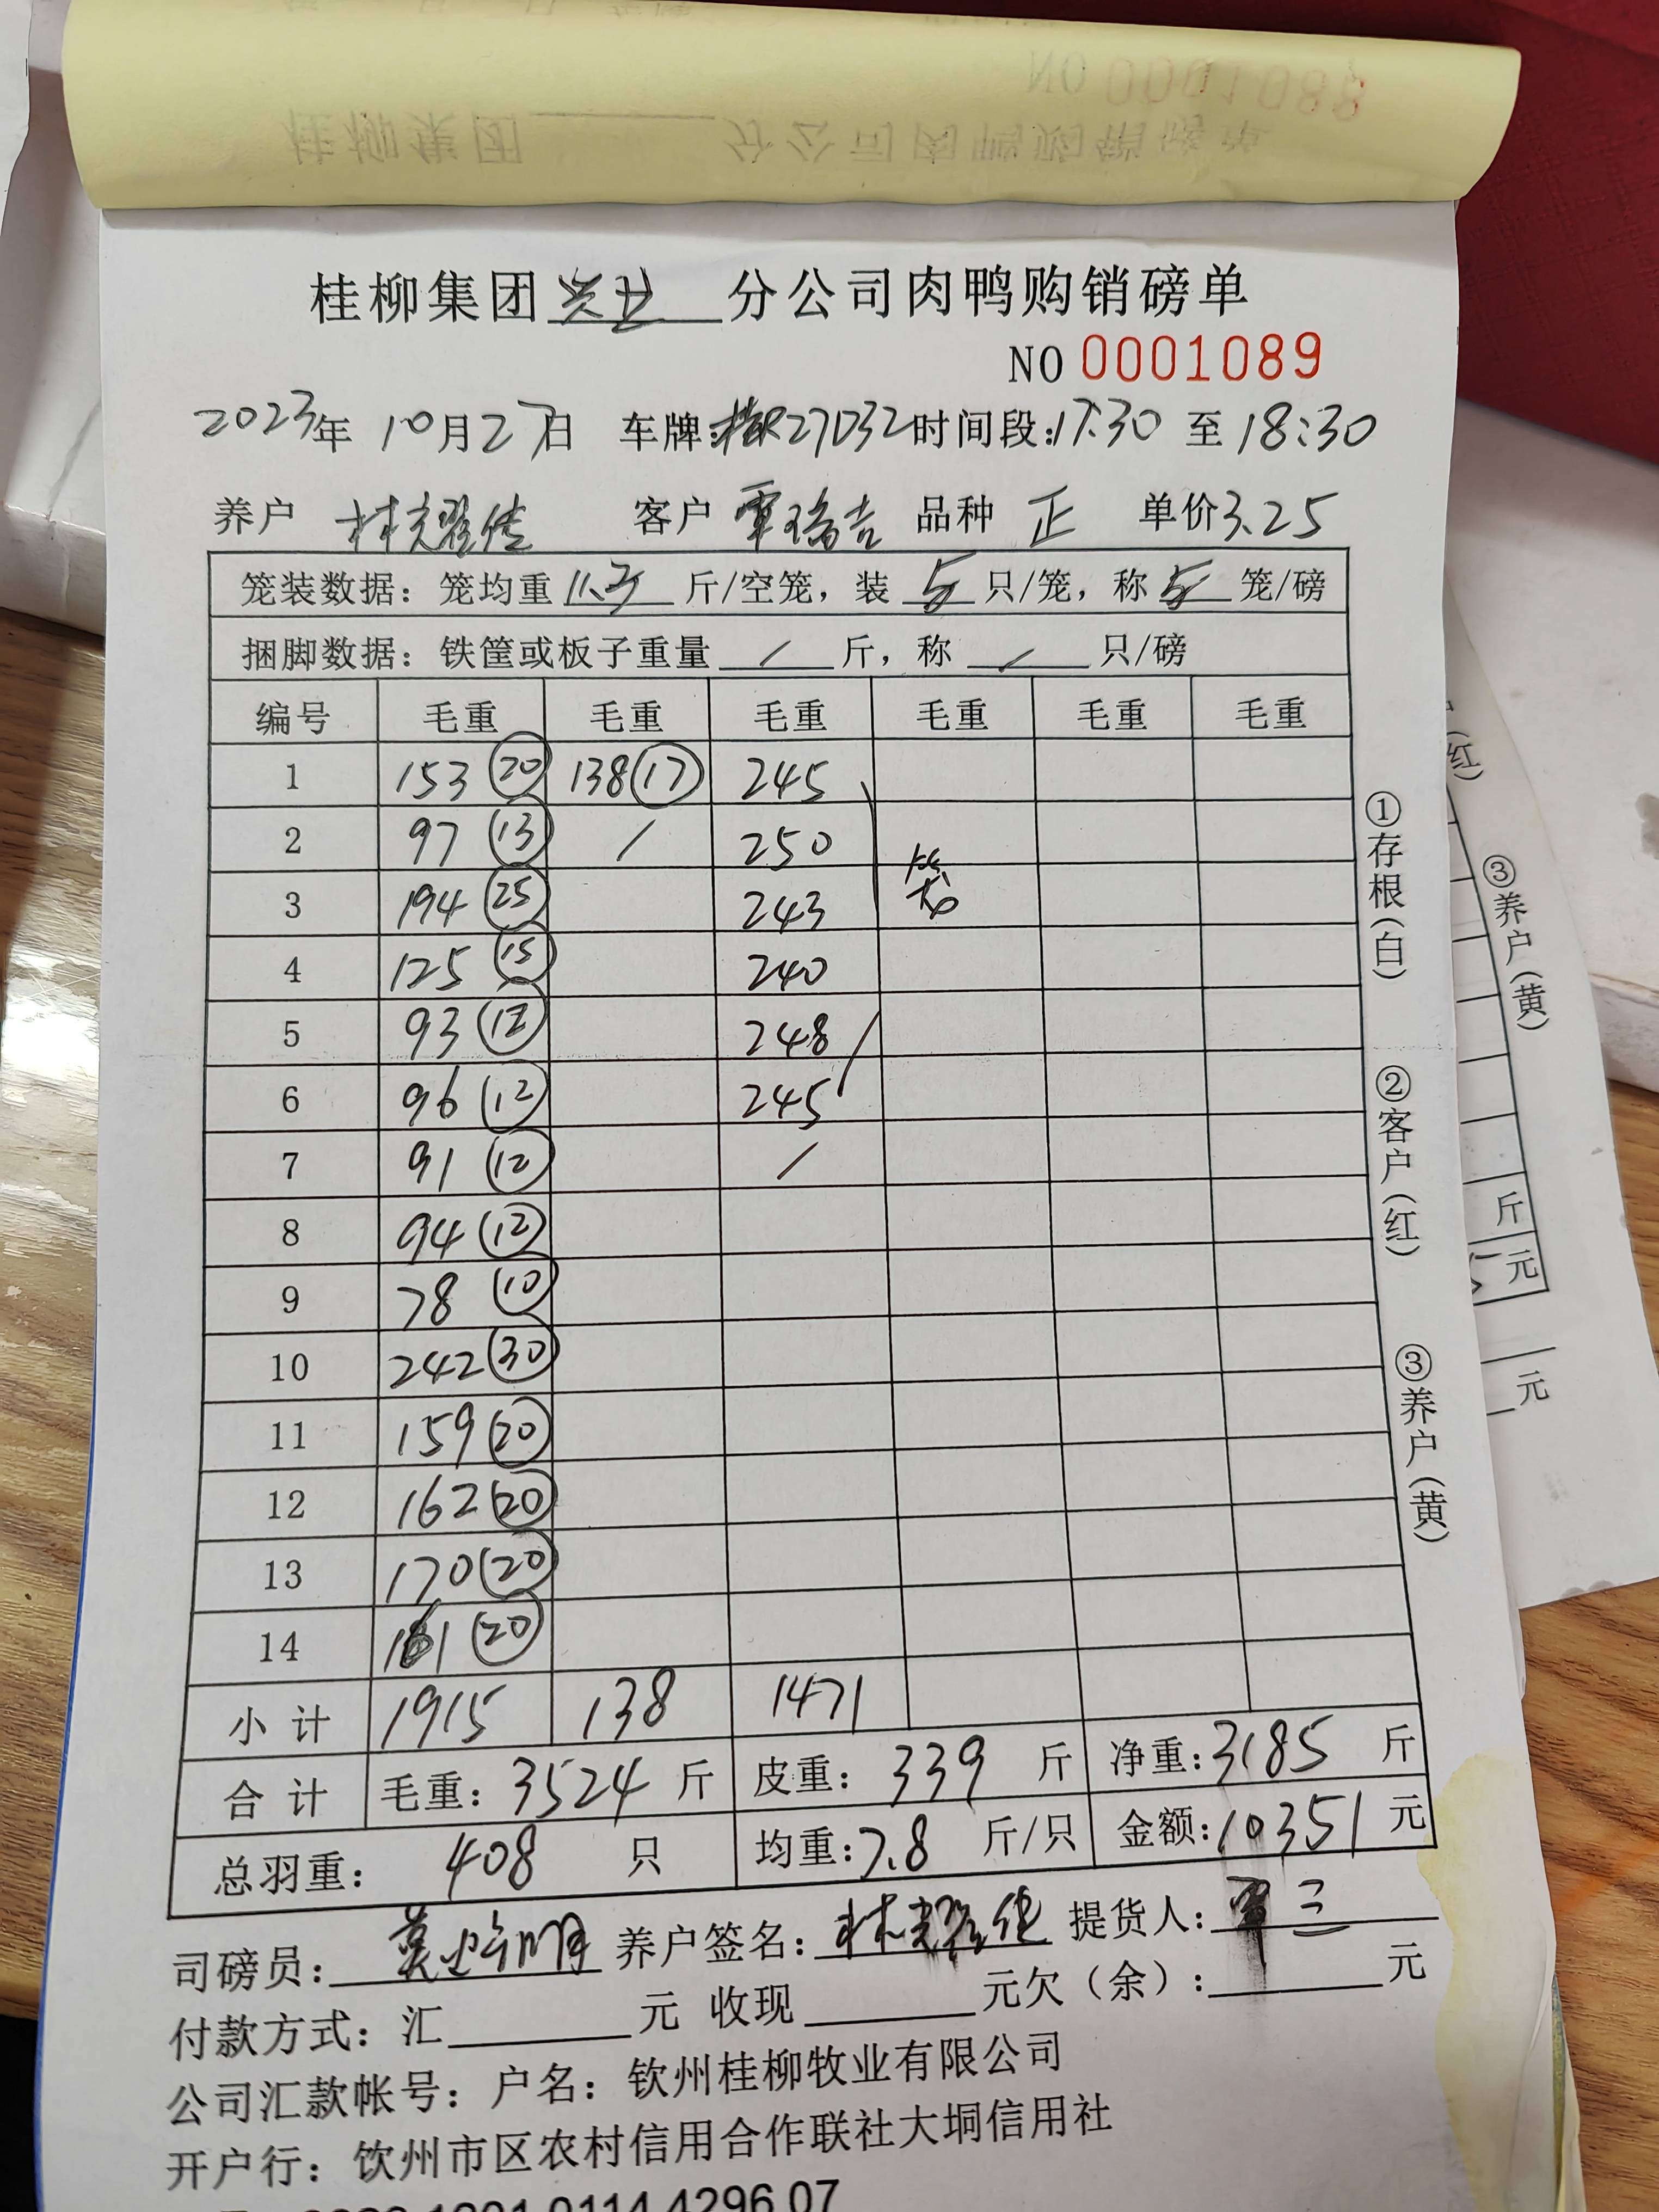 NO 0001088
桂柳集团 分公司肉鸭购销磅单
桂柳集团 分公司肉鸭购销磅单
NO 0001089
2023年 10月27日 车牌:桂R27D32 时间段:17:30 至 18:30
养户 林耀佳 客户 覃瑞吉 品种 正 单价3.25
笼装数据：笼均重 11.3 斤/空笼，装 5 只/笼，称 5 笼/磅
捆脚数据：铁筐或板子重量 / 斤，称 / 只/磅
编号 毛重 毛重 毛重 毛重 毛重 毛重
1 153 (20) 138 (17) 245
2 97 (13) / 250
3 194 (25) 243 笼
4 125 (15) 240
5 93 (12) 248
6 96 (12) 245
7 91 (12) /
8 94 (12)
9 78 (10)
10 242 (30)
11 159 (20)
12 162 (20)
13 170 (20)
14 161 (20)
小计 1915 138 1471
合计 毛重：3524 斤 皮重：339 斤 净重：3185 斤
总羽重： 408 只 均重：7.8 斤/只 金额：10351 元
司磅员： 养户签名：林耀佳 提货人：覃三
付款方式：汇 元 收现 元欠（余）： 元
公司汇款帐号：户名：钦州桂柳牧业有限公司
开户行：钦州市区农村信用合作联社大垌信用社
①存根（白）
②客户（红）
③养户（黄）
（红）
③养户（黄）
斤
元
元